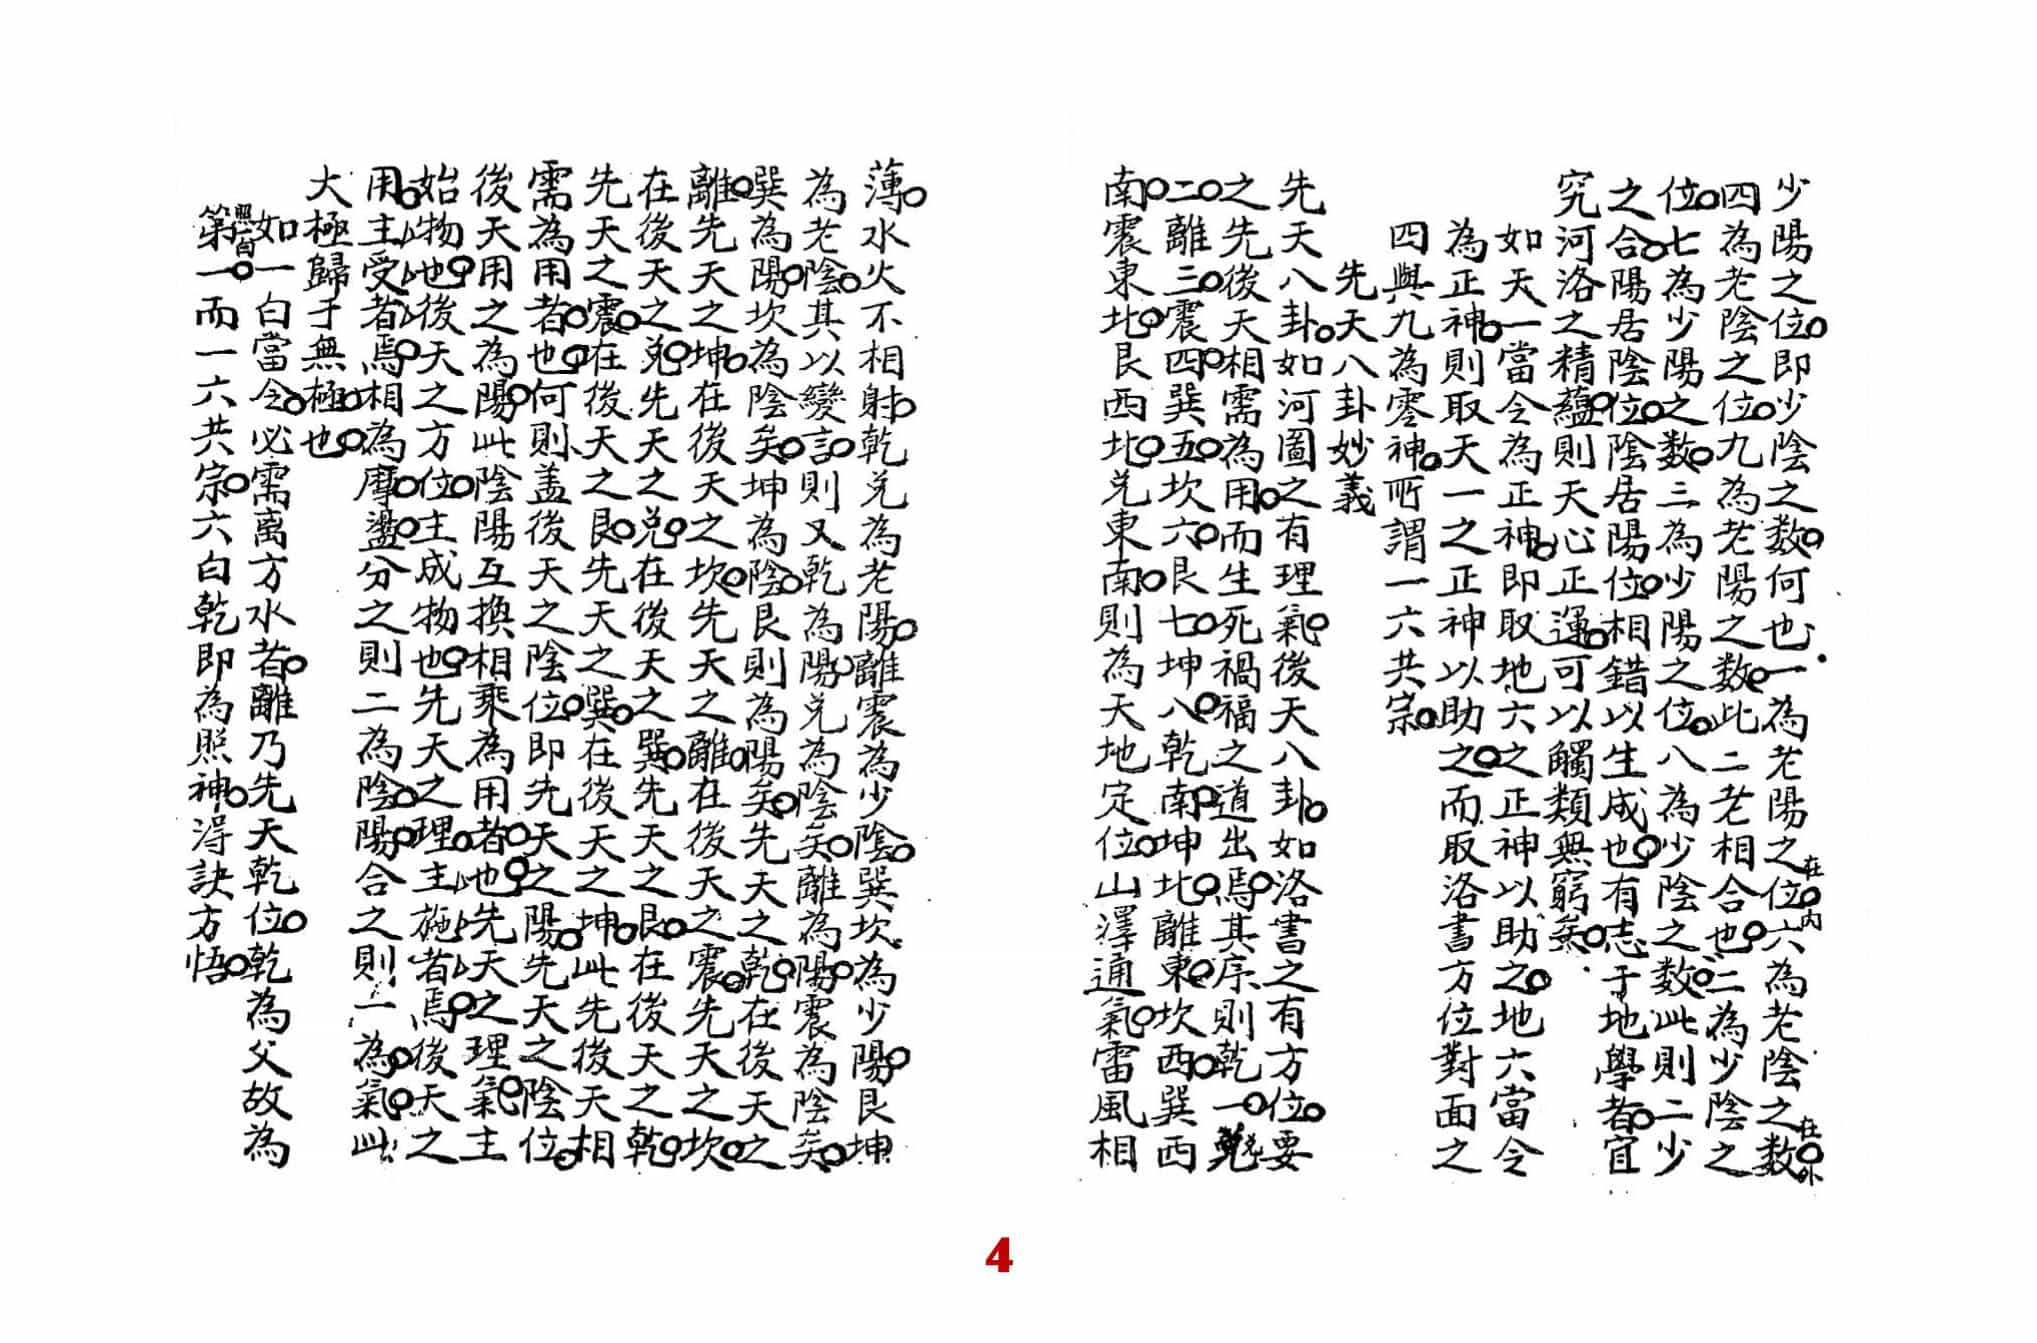 少陽之位。即少陰之数。何也。一為老陽之位。在内六為老陰之数。在外
四為老陰之位。九為老陽之数。此二老相合也。二為少陰之
位。七為少陽之数。三為少陽之位。八為少陰之数。此則二少
之合。陽居陰位。陰居陽位。相錯以生成也。有志于地學者。宜
究河洛之精蘊。則天心正運。可以觸類無窮矣。
如天一當令為正神。即取地六之正神以助之。地六當令
為正神。則取天一之正神以助之。而取洛書方位對面之
四與九為零神。所謂一六共宗。
先天八卦妙義
先天八卦。如河圖之有理氣。後天八卦。如洛書之有方位。要
之先後天相需為用。而生死禍福之道出焉。其序則乾一。兌
二。離三。震四。巽五。坎六。艮七。坤八。乾南。坤北。離東。坎西。巽西
南。震東北。艮西北。兌東南。則為天地定位。山澤通氣。雷風相
薄。水火不相射。乾兌為老陽。離震為少陰。巽坎為少陽。艮坤
為老陰。其以變言。則又乾為陽。兌為陰矣。離為陽。震為陰矣。
巽為陽。坎為陰矣。坤為陰。艮則為陽矣。先天之乾。在後天之
離。先天之坤。在後天之坎。先天之離。在後天之震。先天之坎。
在後天之兌。先天之兌。在後天之巽。先天之艮。在後天之乾。
先天之震。在後天之艮。先天之巽。在後天之坤。此先後天相
需為用者也。何則。盖後天之陰位。即先天之陽。先天之陰位。
後天用之為陽。此陰陽互換相乘為用者也。先天之理氣。主
始物也。後天之方位。主成物也。先天之理。主施者焉。後天之
用。主受者焉。相為摩盪。分之則二為陰陽。合之則一為氣。此
大極歸于無極也。
如一白當令。必需离方水者。離乃先天乾位。乾為父故為
第一。而一六共宗。六白乾即為照神。得訣方悟。